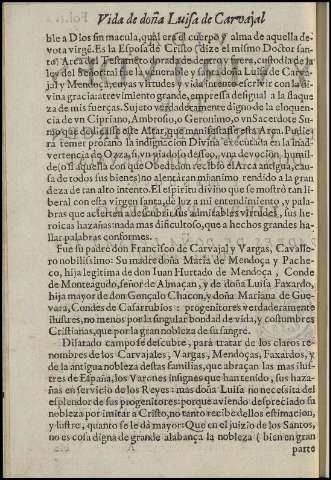 Vida de doña Luisa de Carvajal
ble a Dios sin macula, qual era el cuerpo y alma de aquella de-
vota virgẽ. Es la Esposa de Cristo (dize el mismo Doctor san-
to) Arca del Testamẽto dorada dentro y fuera, custodia de la
ley del Señor: fue la venerable y santa doña Luisa de Carva-
jal y Mendoça, cuyas virtudes y vida intento escrivir con la di-
vina gracia: atrevimiento grande, empressa desigual a la flaque
za de mis fuerças. Sujeto verdaderamente digno de la eloquen-
cia de vn Cipriano, Ambrosio, o Geronimo, o vn Sacerdote Su-
mo que dedicasse este Altar, que manifestasse esta Arca. Pudiera
temer profano la indignacion Divina executada en la inad-
vertencia de Ozza, si vn piadoso desseo, vna devocion humil-
de (o si aquella con que Obededom recibio el Arca antigua, cau-
sa de todos sus bienes) no alentàra mi animo rendido a la gran
deza de tan alto intento. El espiritu divino que se mostrò tan li-
beral con esta virgen santa, de luz a mi entendimiento, y pala-
bras que acierten a descubrir sus admirables virtudes, sus he-
roicas hazañas: nada mas dificultoso, que a hechos grandes ha-
llar palabras conformes.
Fue su padre don Francisco de Carvajal y Vargas, Cavalle-
ro nobilissimo: Su madre doña Maria de Mendoça y Pache-
co, hija legitima de don Iuan Hurtado de Mendoça, Conde
de Monteagudo, señor de Almaçan, y de doña Luisa Faxardo,
hija mayor de don Gonçalo Chacon, y doña Mariana de Gue-
vara, Condes de Casarrubios: progenitores verdaderamente
ilustres, no menos por la singular bondad de vida, y costumbres
Cristianas, que por la gran nobleza de su sangre.
Dilatado campo se descubre, para tratar de los claros re-
nombres de los Carvajales, Vargas, Mendoças, Faxardos, y
de la antigua nobleza destas familias, que abraçan las mas ilus-
tres de España, los Varones insignes que han tenido, sus haza-
ñas en servicio de los Reyes: mas doña Luisa no necessita del
esplendor de sus progenitores: porque aviendo despreciado su
nobleza por imitar a Cristo, no tanto recibe dellos estimacion,
y lustre, quanto se le dà mayor: Que en el juizio de los Santos,
no es cosa digna de grande alabança la nobleza (bien en gran
parte